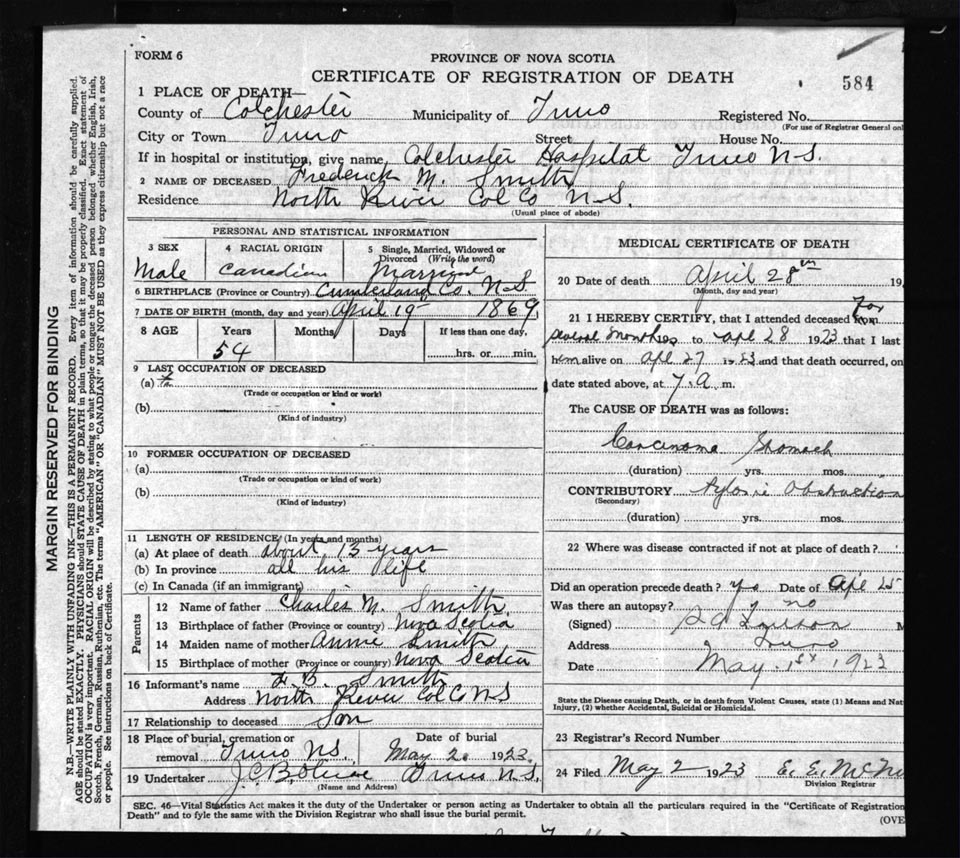 FORM 6
PROVINCE OF NOVA SCOTIA
CERTIFICATE OF REGISTRATION OF DEATH
584
1 PLACE OF DEATH—
County of Colchester Municipality of Truro Registered No.
(For use of Registrar General on
City or Town Truro Street House No.
If in hospital or institution, give name, Colchester Hospital Truro N.S.
2 NAME OF DECEASED Frederick M. Smith
Residence North River Col Co N.S.
(Usual place of abode)
PERSONAL AND STATISTICAL INFORMATION
3 SEX Male
4 RACIAL ORIGIN Canadian
5 Single, Married, Widowed or Divorced (Write the word) Married
6 BIRTHPLACE (Province or Country) Cumberland Co. N.S
7 DATE OF BIRTH (month, day and year) April 19 1869
8 AGE Years Months Days If less than one day,
54 hrs. or min.
9 LAST OCCUPATION OF DECEASED
(a)
(Trade or occupation or kind or work)
(b)
(Kind of industry)
10 FORMER OCCUPATION OF DECEASED
(a)
(Trade or occupation or kind of work)
(b)
(Kind of industry)
11 LENGTH OF RESIDENCE (In years and months)
(a) At place of death about 13 years
(b) In province all his life
(c) In Canada (if an immigrant)
Parents
12 Name of father Charles M. Smith
13 Birthplace of father (Province or country) Nova Scotia
14 Maiden name of mother Annie Smith
15 Birthplace of mother (Province or country) Nova Scotia
16 Informant's name B. Smith
Address North River Col Co N S
17 Relationship to deceased Son
18 Place of burial, cremation or removal Truro N.S. Date of burial May 2. 1923.
19 Undertaker Truro N.S.
(Name and Address)
MEDICAL CERTIFICATE OF DEATH
20 Date of death April 28th 19
(Month, day and year)
21 I HEREBY CERTIFY, that I attended deceased from For
several months to apl 28 1923 that I last
him alive on apl 27 1923 and that death occurred, on
date stated above, at 7.a m.
The CAUSE OF DEATH was as follows:
Carcinoma Stomach
(duration) yrs. mos.
CONTRIBUTORY Pyloric Obstruction
(Secondary)
(duration) yrs. mos.
22 Where was disease contracted if not at place of death?
Did an operation precede death? yes Date of apl 25
Was there an autopsy? no
(Signed)
Address Truro
Date May 1st 1923
State the Disease causing Death, or in death from Violent Causes, state (1) Means and Nat
Injury, (2) whether Accidental, Suicidal or Homicidal.
23 Registrar's Record Number
24 Filed May 2 1923 E. E. McN
Division Registrar
SEC. 46—Vital Statistics Act makes it the duty of the Undertaker or person acting as Undertaker to obtain all the particulars required in the "Certificate of Registration
Death" and to fyle the same with the Division Registrar who shall issue the burial permit.
(OVE
MARGIN RESERVED FOR BINDING
N.B.—WRITE PLAINLY WITH UNFADING INK—THIS IS A PERMANENT RECORD. Every item of information should be carefully supplied.
AGE should be stated EXACTLY. PHYSICIANS should STATE CAUSE OF DEATH in plain terms, so that it may be properly classified. Exact statement of
OCCUPATION is very important. RACIAL ORIGIN will be described by stating to what people or tongue the deceased person belonged whether English, Irish,
Scotch, French, German, Russian, Ruthenian, etc. The terms "AMERICAN" OR "CANADIAN" MUST NOT BE USED as they express citizenship but not a race
or people. See instructions on back of Certificate.